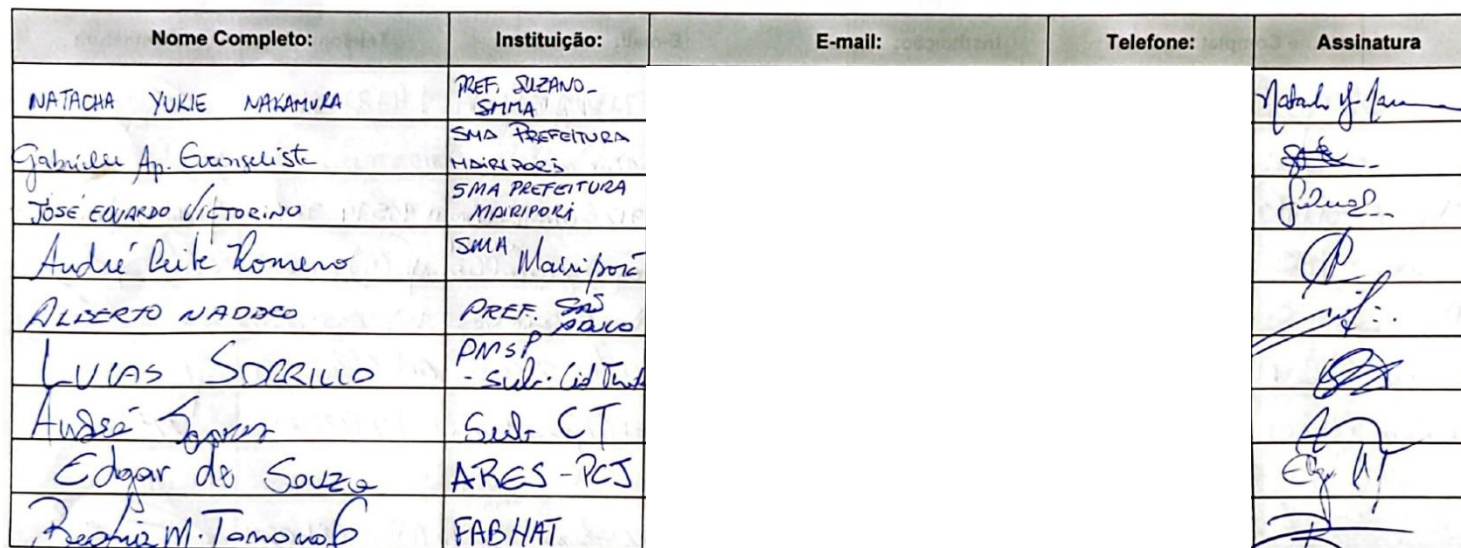 Nome Completo: Instituição: E-mail: Telefone: Assinatura
NATACHA YUKIE NAKAMURA PREF. SUZANO - SMMA
Gabrielle Ap. Evangelista SMA PREFEITURA MAIRIPORÃ
JOSÉ EDUARDO VICTORINO SMA PREFEITURA MAIRIPORÃ
André Leite Romero SMA Mairiporã
ALBERTO PREF. SÃO PAULO
LUCAS SORRILLO PMSP - Sub. Cid
André Sub. CT
Edgar de Souza ARES-PCJ
M. FABHAT